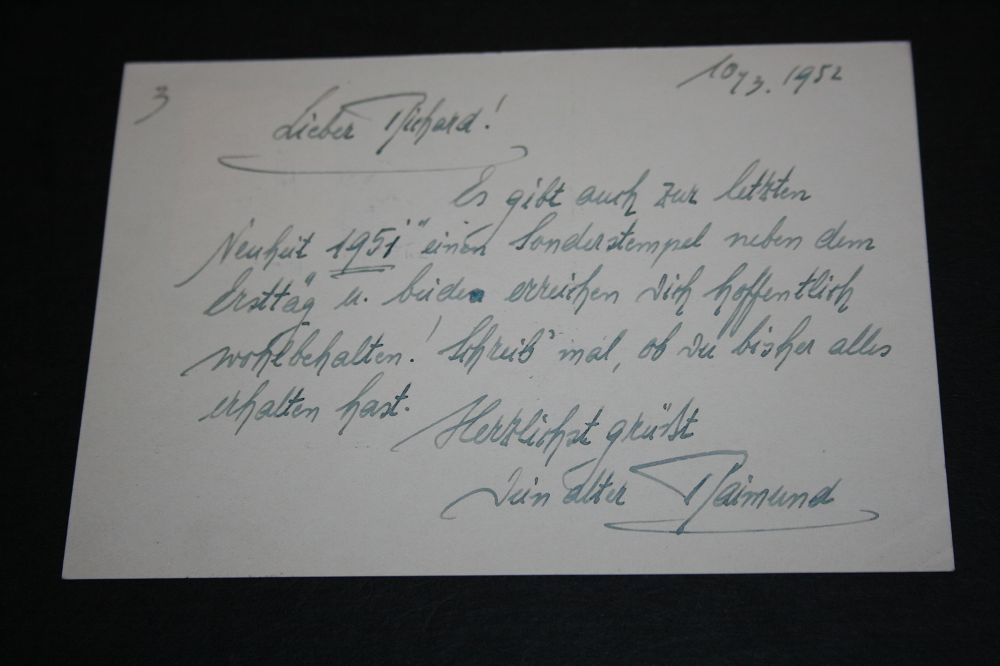 3
10/3. 1952
Lieber Richard!
Es gibt auch zur letzten
Neuheit 1951" einen Sonderstempel neben dem
Ersttag u. beides erreichen Dich hoffentlich
wohlbehalten! Schreib' mal, ob Du bisher alles
erhalten hast.
Herzlichst grüßt
Dein alter Raimund